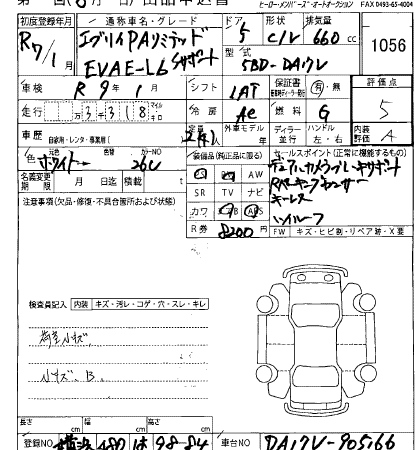 ヒーロー・メンバーズ・オートオークション FAX 0493-65-4004
初度登録年月 通称車名・グレード ドア 形状 排気量
R7/1 エブリイPAリミテッド 5 C/V 660 cc 1056
EVAE-L6 Sサポート 型式 5BD-DA17V
車検 R 9年 1月 シフト 1AT 保証書 有・無 評価点
走行 3318 マイル キロ 冷房 AC 燃料 G 5
車歴 自家用・レンタ・事業用 定員 2(4)人 外車モデル年 ディーラー 並行 ハンドル 左・右 内装評価 A
色 元色 ホワイト カラーNO 26U 装備品(純正品に限る) セールスポイント(正常に機能するもの)
名義変更期限 月 日迄 積載 t AW デュアルカメラブレーキサポート
注意事項(欠品・修復・不具合箇所および状態) SR TV ナビ Rパーキングセンサー
カワ ABS キーレス
R券 8200円 ハイルーフ
FW キズ・ヒビ割・リペア跡・X要
検査員記入 内装 キズ・汚レ・コゲ・穴・スレ・キレ
荷室小キズ
小キズ、B
長さ cm 幅 cm 高さ cm
登録NO 横浜 480 は 98-84 車台NO DA17V-905166